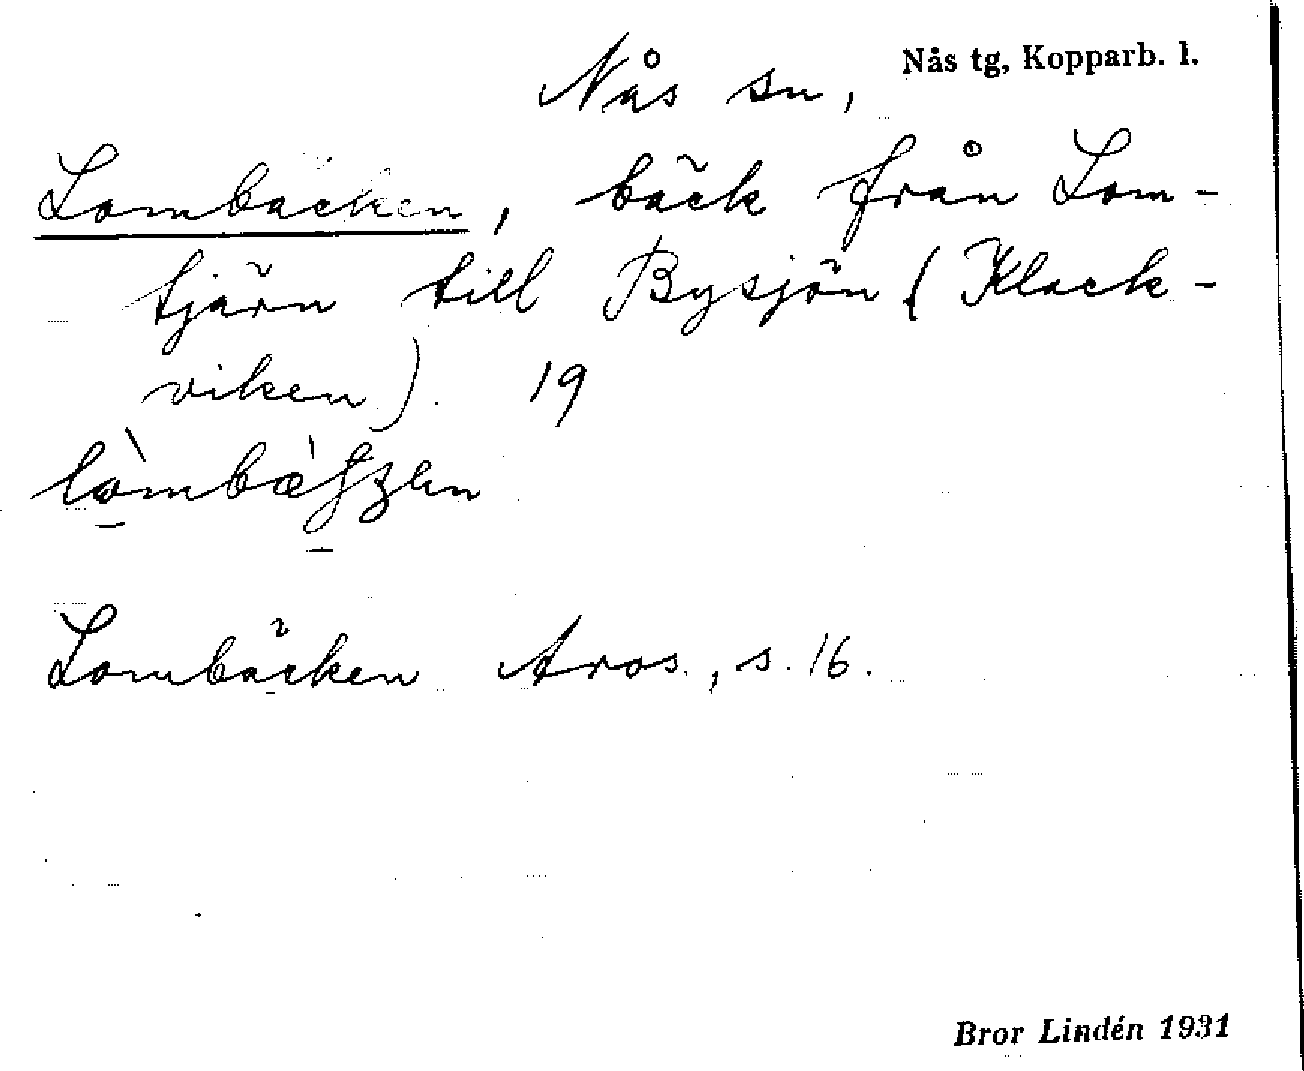 Nås sn, Nås tg, Kopparb. l.
Lombäcken, bäck från Lom-
tjärn till Bysjön (Klack-
viken). 19
Lombäcken Aros., s. 16.
Bror Lindén 1931